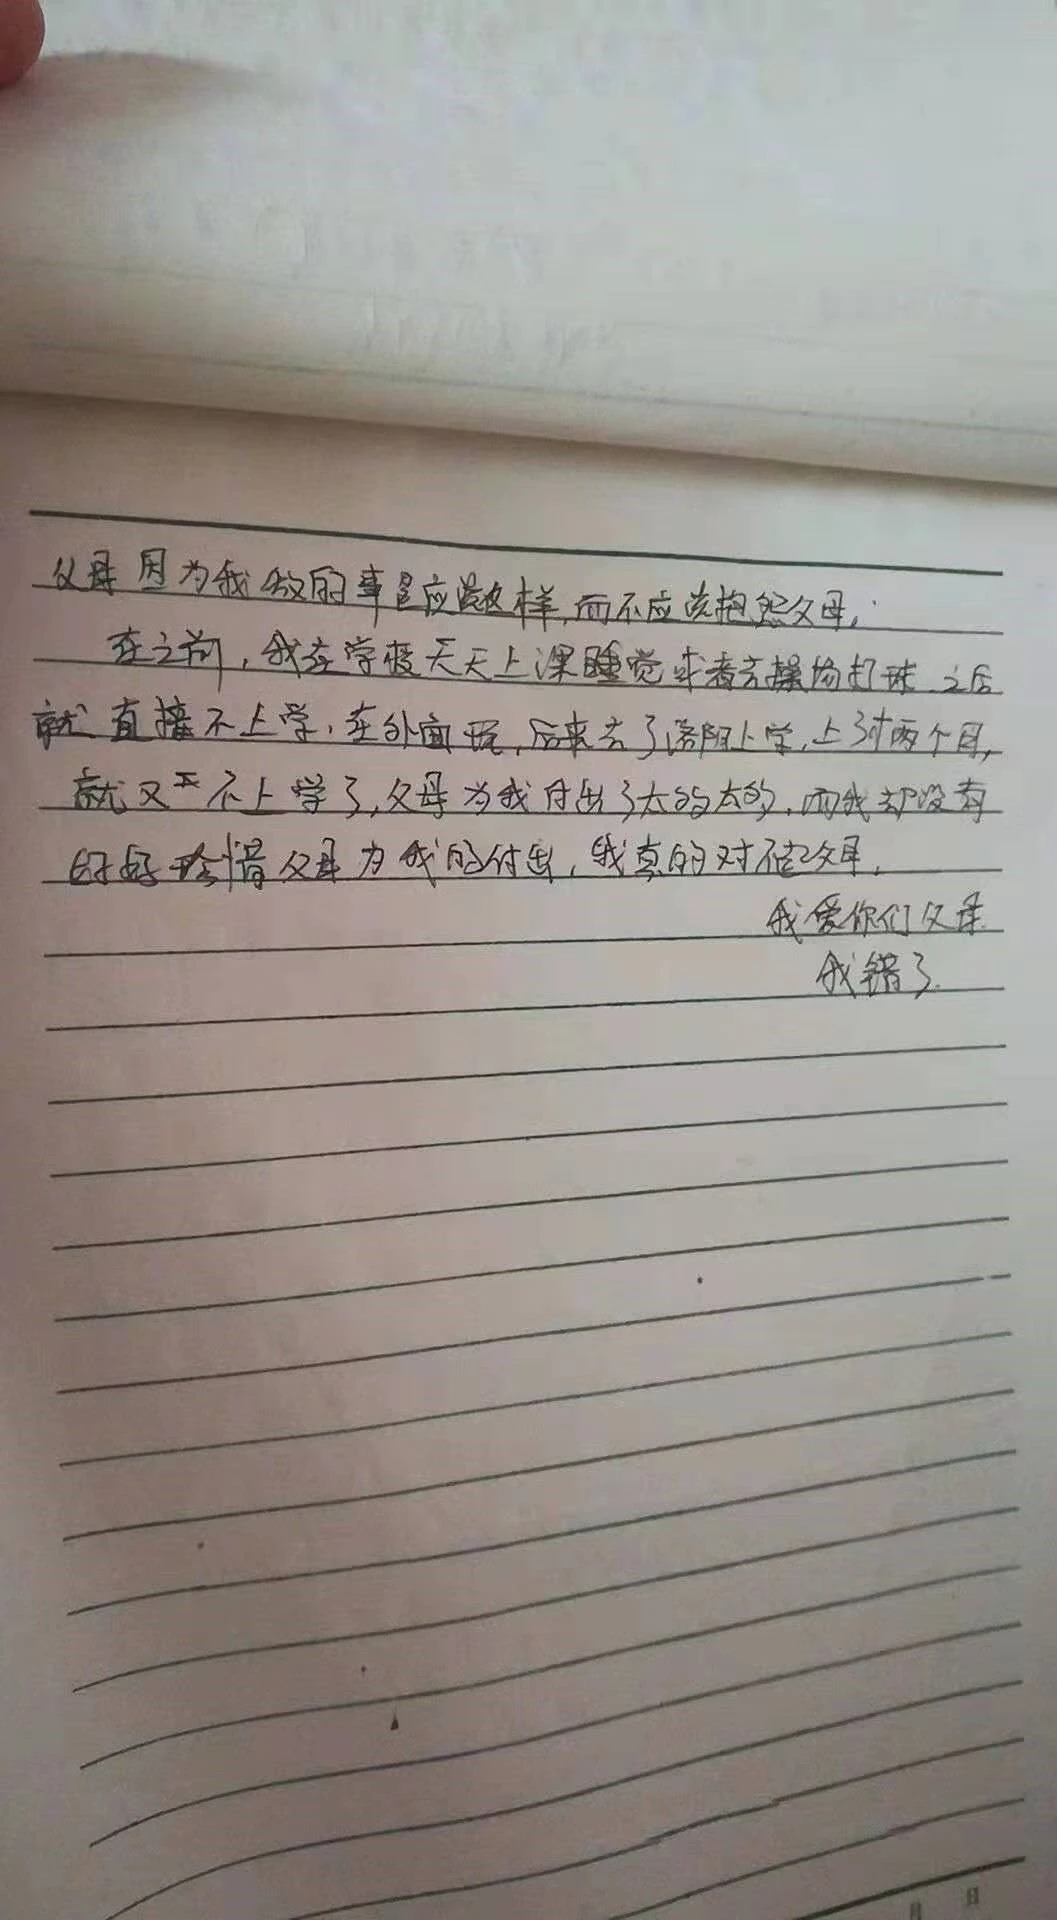 父母因为我做的事是应该这样,而不应该抱怨父母,
在之前,我在学校天天上课睡觉或者去操场打球之后
就直接不上学,在外面玩,后来去了洛阳上学,上了才两个月,
就又不上学了,父母为我付出了太多太多的,而我却没有
好好珍惜父母为我的付出,我真的对不起父母,
我爱你们父母
我错了.
月 日